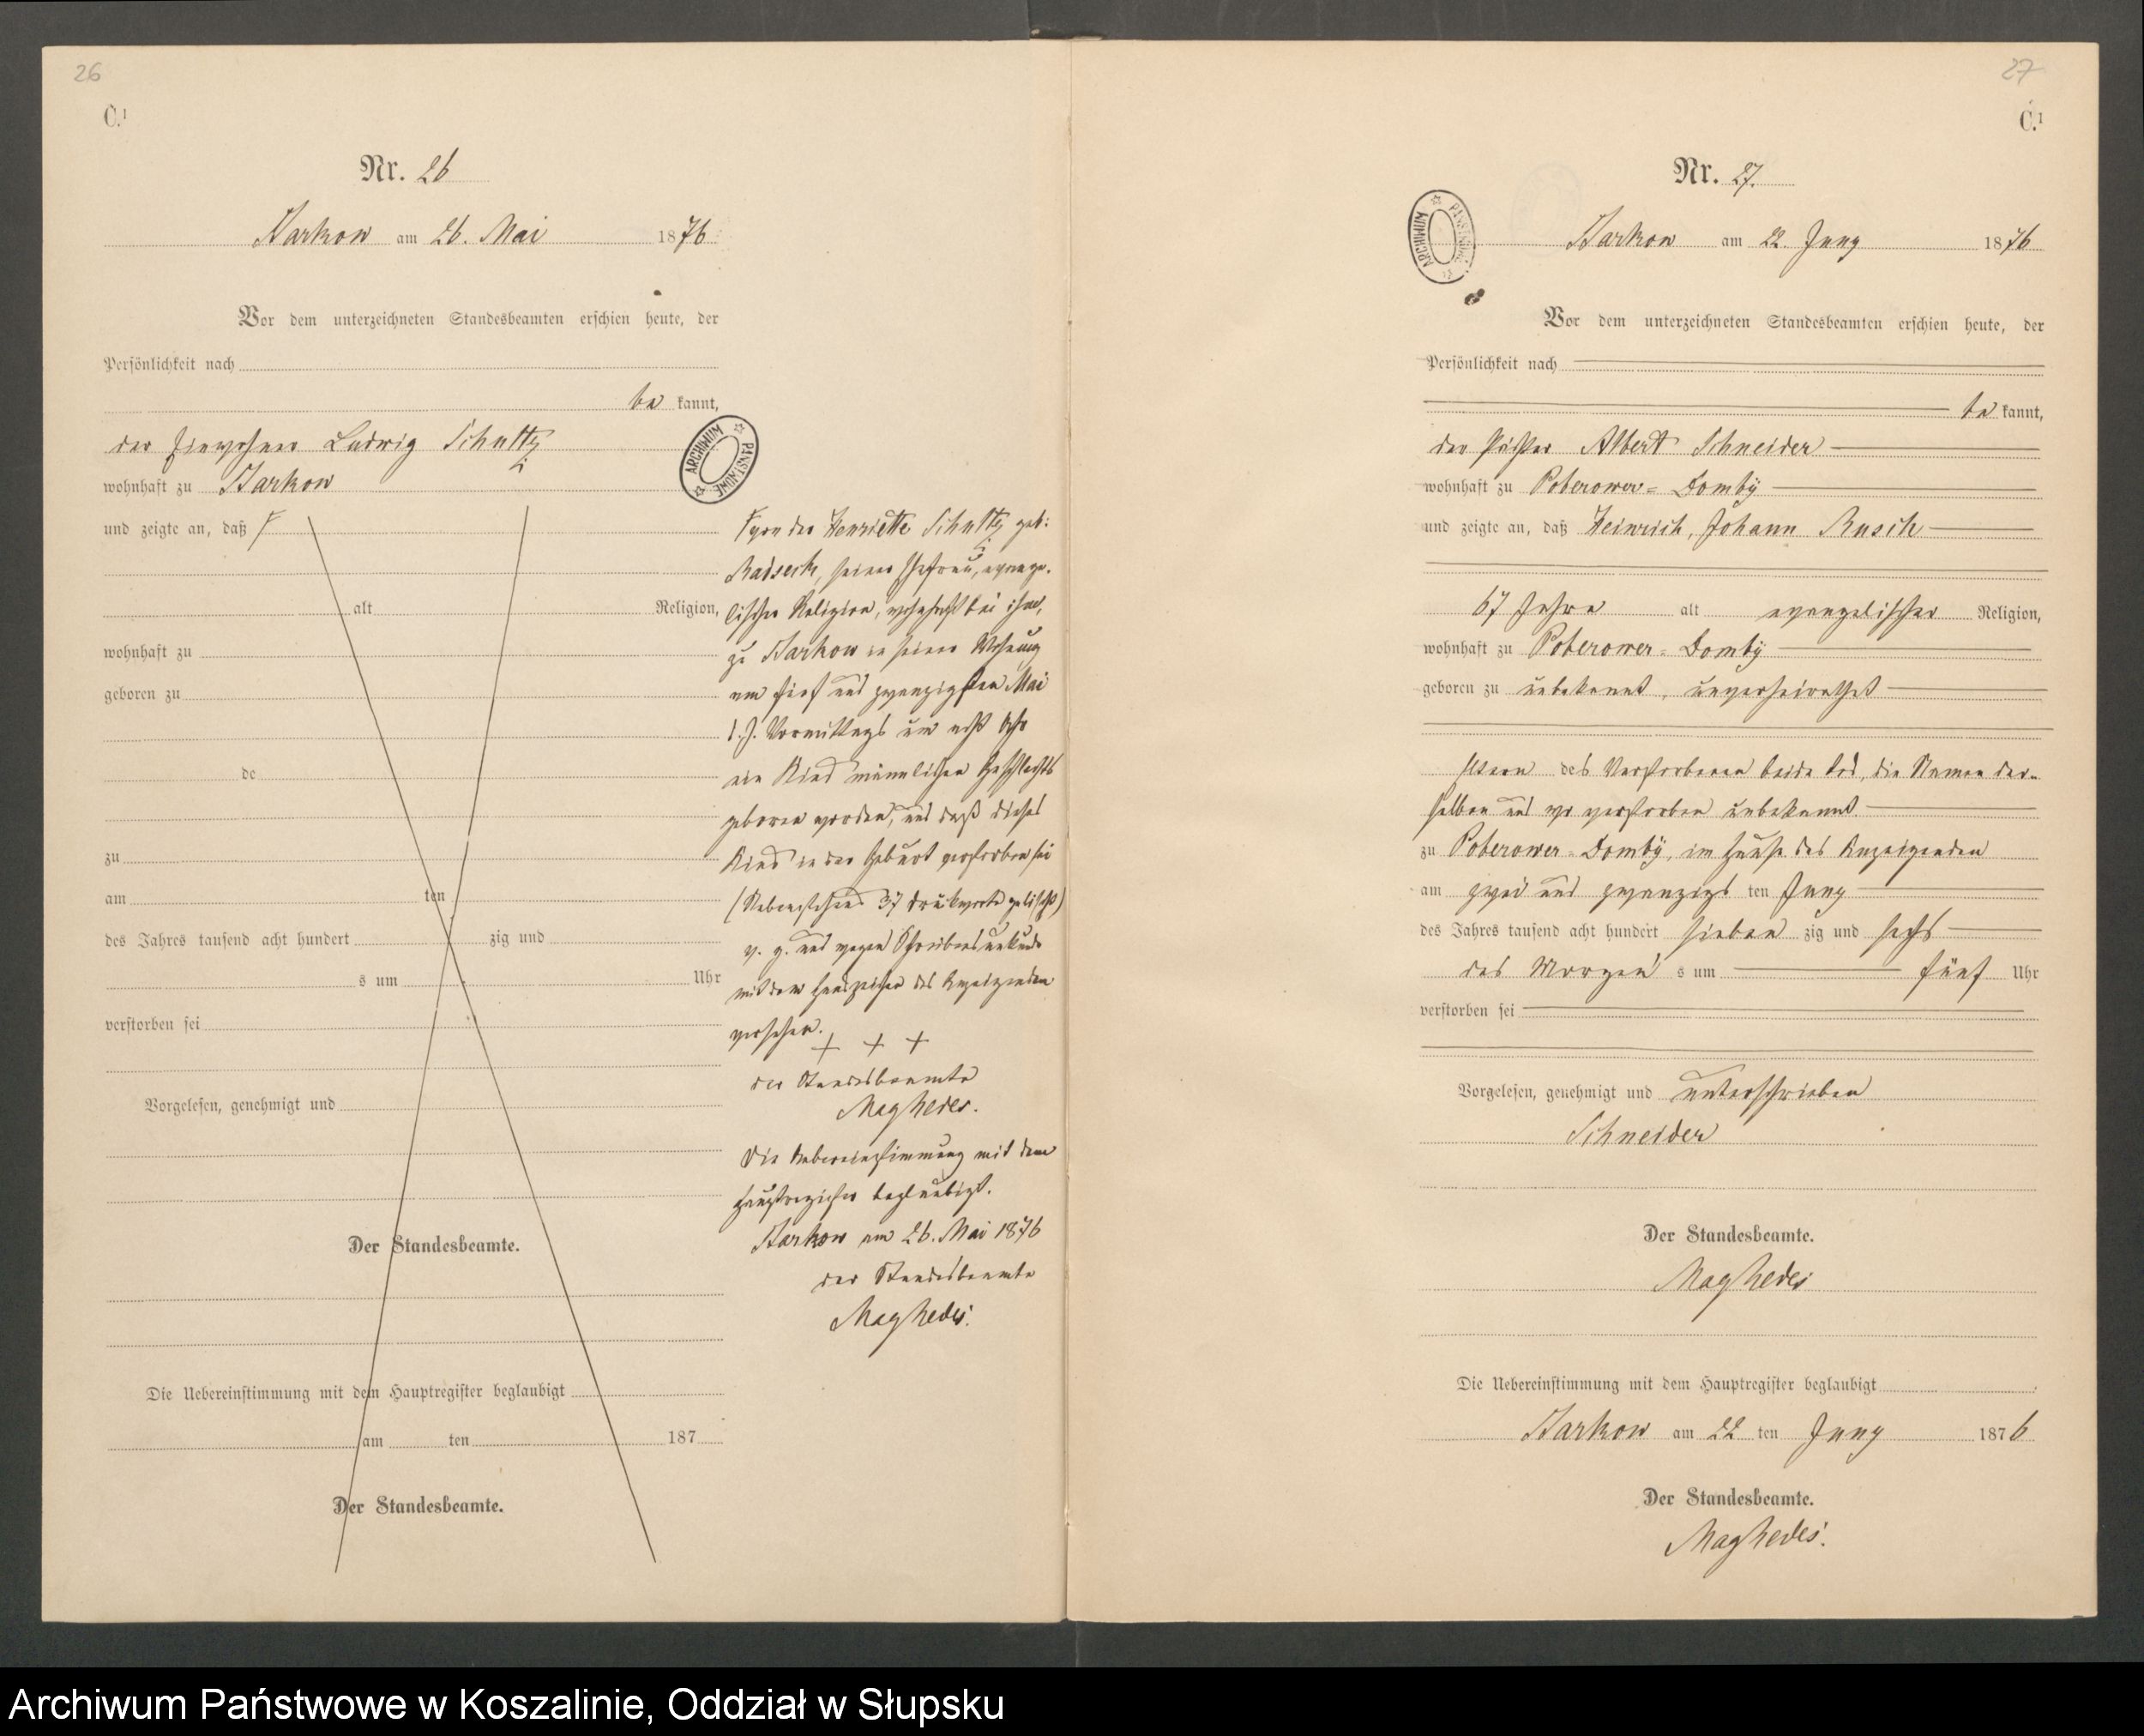 26
C.1
Nr. 26
Barkow am 26. Mai 1876
Vor dem unterzeichneten Standesbeamten erschien heute, der
Persönlichkeit nach
be kannt,
der Einwohner Ludwig Schultz
wohnhaft zu Barkow
und zeigte an, daß
alt Religion,
wohnhaft zu
geboren zu
de
zu
am ten
des Jahres tausend acht hundert zig und
s um Uhr
verstorben sei
Vorgelesen, genehmigt und
Der Standesbeamte.
Die Uebereinstimmung mit dem Hauptregister beglaubigt
am ten 187
Der Standesbeamte.
ARCHIWUM PAŃSTWOWE
von der Henriette Schultz geb:
seiner Ehefrau, evange-
lischer Religion, wohnhaft bei ihm,
zu Barkow in seiner Wohnung
am fünf und zwanzigsten Mai
d. J. Vormittags um acht Uhr
ein Kind männlichen Geschlechts
geboren worden, und daß dieses
Kind in der Geburt verstorben sei
(Nebenstehend 37 Druckworte gelöscht)
v. g. und wegen Schreibensunkunde
mit dem Handzeichen des Anzeigenden
versehen.
+ + +
der Standesbeamte
Die Uebereinstimmung mit dem
Hauptregister beglaubigt.
Barkow am 26. Mai 1876
der Standesbeamte
27
C.1
Nr. 27.
ARCHIWUM PAŃSTWOWE
Barkow am 22. Juny 1876
Vor dem unterzeichneten Standesbeamten erschien heute, der
Persönlichkeit nach
be kannt,
der Pächter Albert Schneider
wohnhaft zu Poberower-Domby
und zeigte an, daß Heinrich, Johann Rusch
67 Jahre alt evangelischer Religion,
wohnhaft zu Poberower-Domby
geboren zu unbekannt, unverheirathet
Eltern des Verstorbenen beide tod, die Namen der-
selben und wo verstorben unbekannt.
zu Poberower-Domby, im Hause des Anzeigenden
am zwei und zwanzigs ten Juny
des Jahres tausend acht hundert sieben zig und sechs
des Morgen s um fünf Uhr
verstorben sei
Vorgelesen, genehmigt und unterschrieben
Schneider
Der Standesbeamte.
Die Uebereinstimmung mit dem Hauptregister beglaubigt
Barkow am 22 ten Juny 1876
Der Standesbeamte.
Archiwum Państwowe w Koszalinie, Oddział w Słupsku